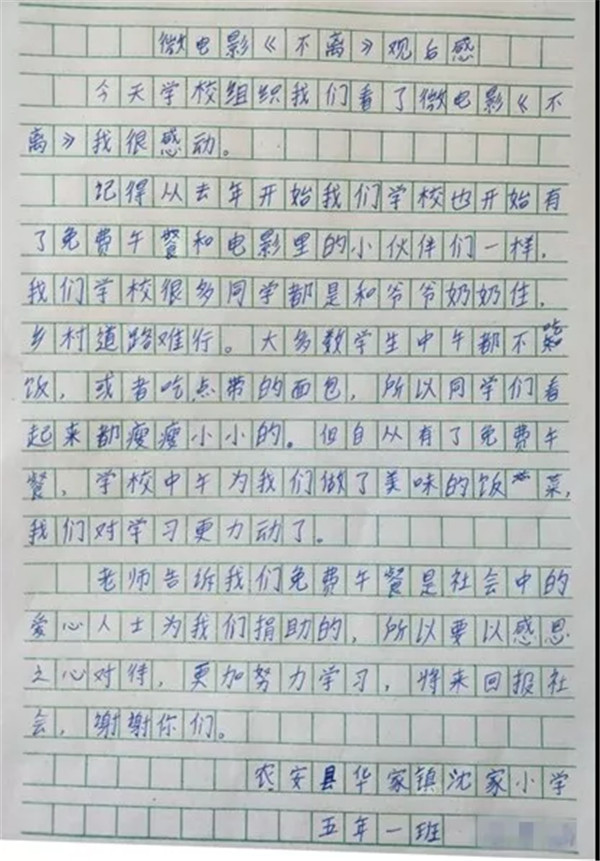 微电影《不离》观后感
今天学校组织我们看了微电影《不
离》我很感动。
记得从去年开始我们学校也开始有
了免费午餐和电影里的小伙伴们一样,
我们学校很多同学都是和爷爷奶奶住,
乡村道路难行。大多数学生中午都不吃
饭,或者吃点带的面包,所以同学们看
起来都瘦瘦小小的。但自从有了免费午
餐,学校中午为我们做了美味的饭菜,
我们对学习更力动了。
老师告诉我们免费午餐是社会中的
爱心人士为我们捐助的,所以要以感恩
之心对待,更加努力学习,将来回报社
会,谢谢你们。
农安县华家镇沈家小学
五年一班